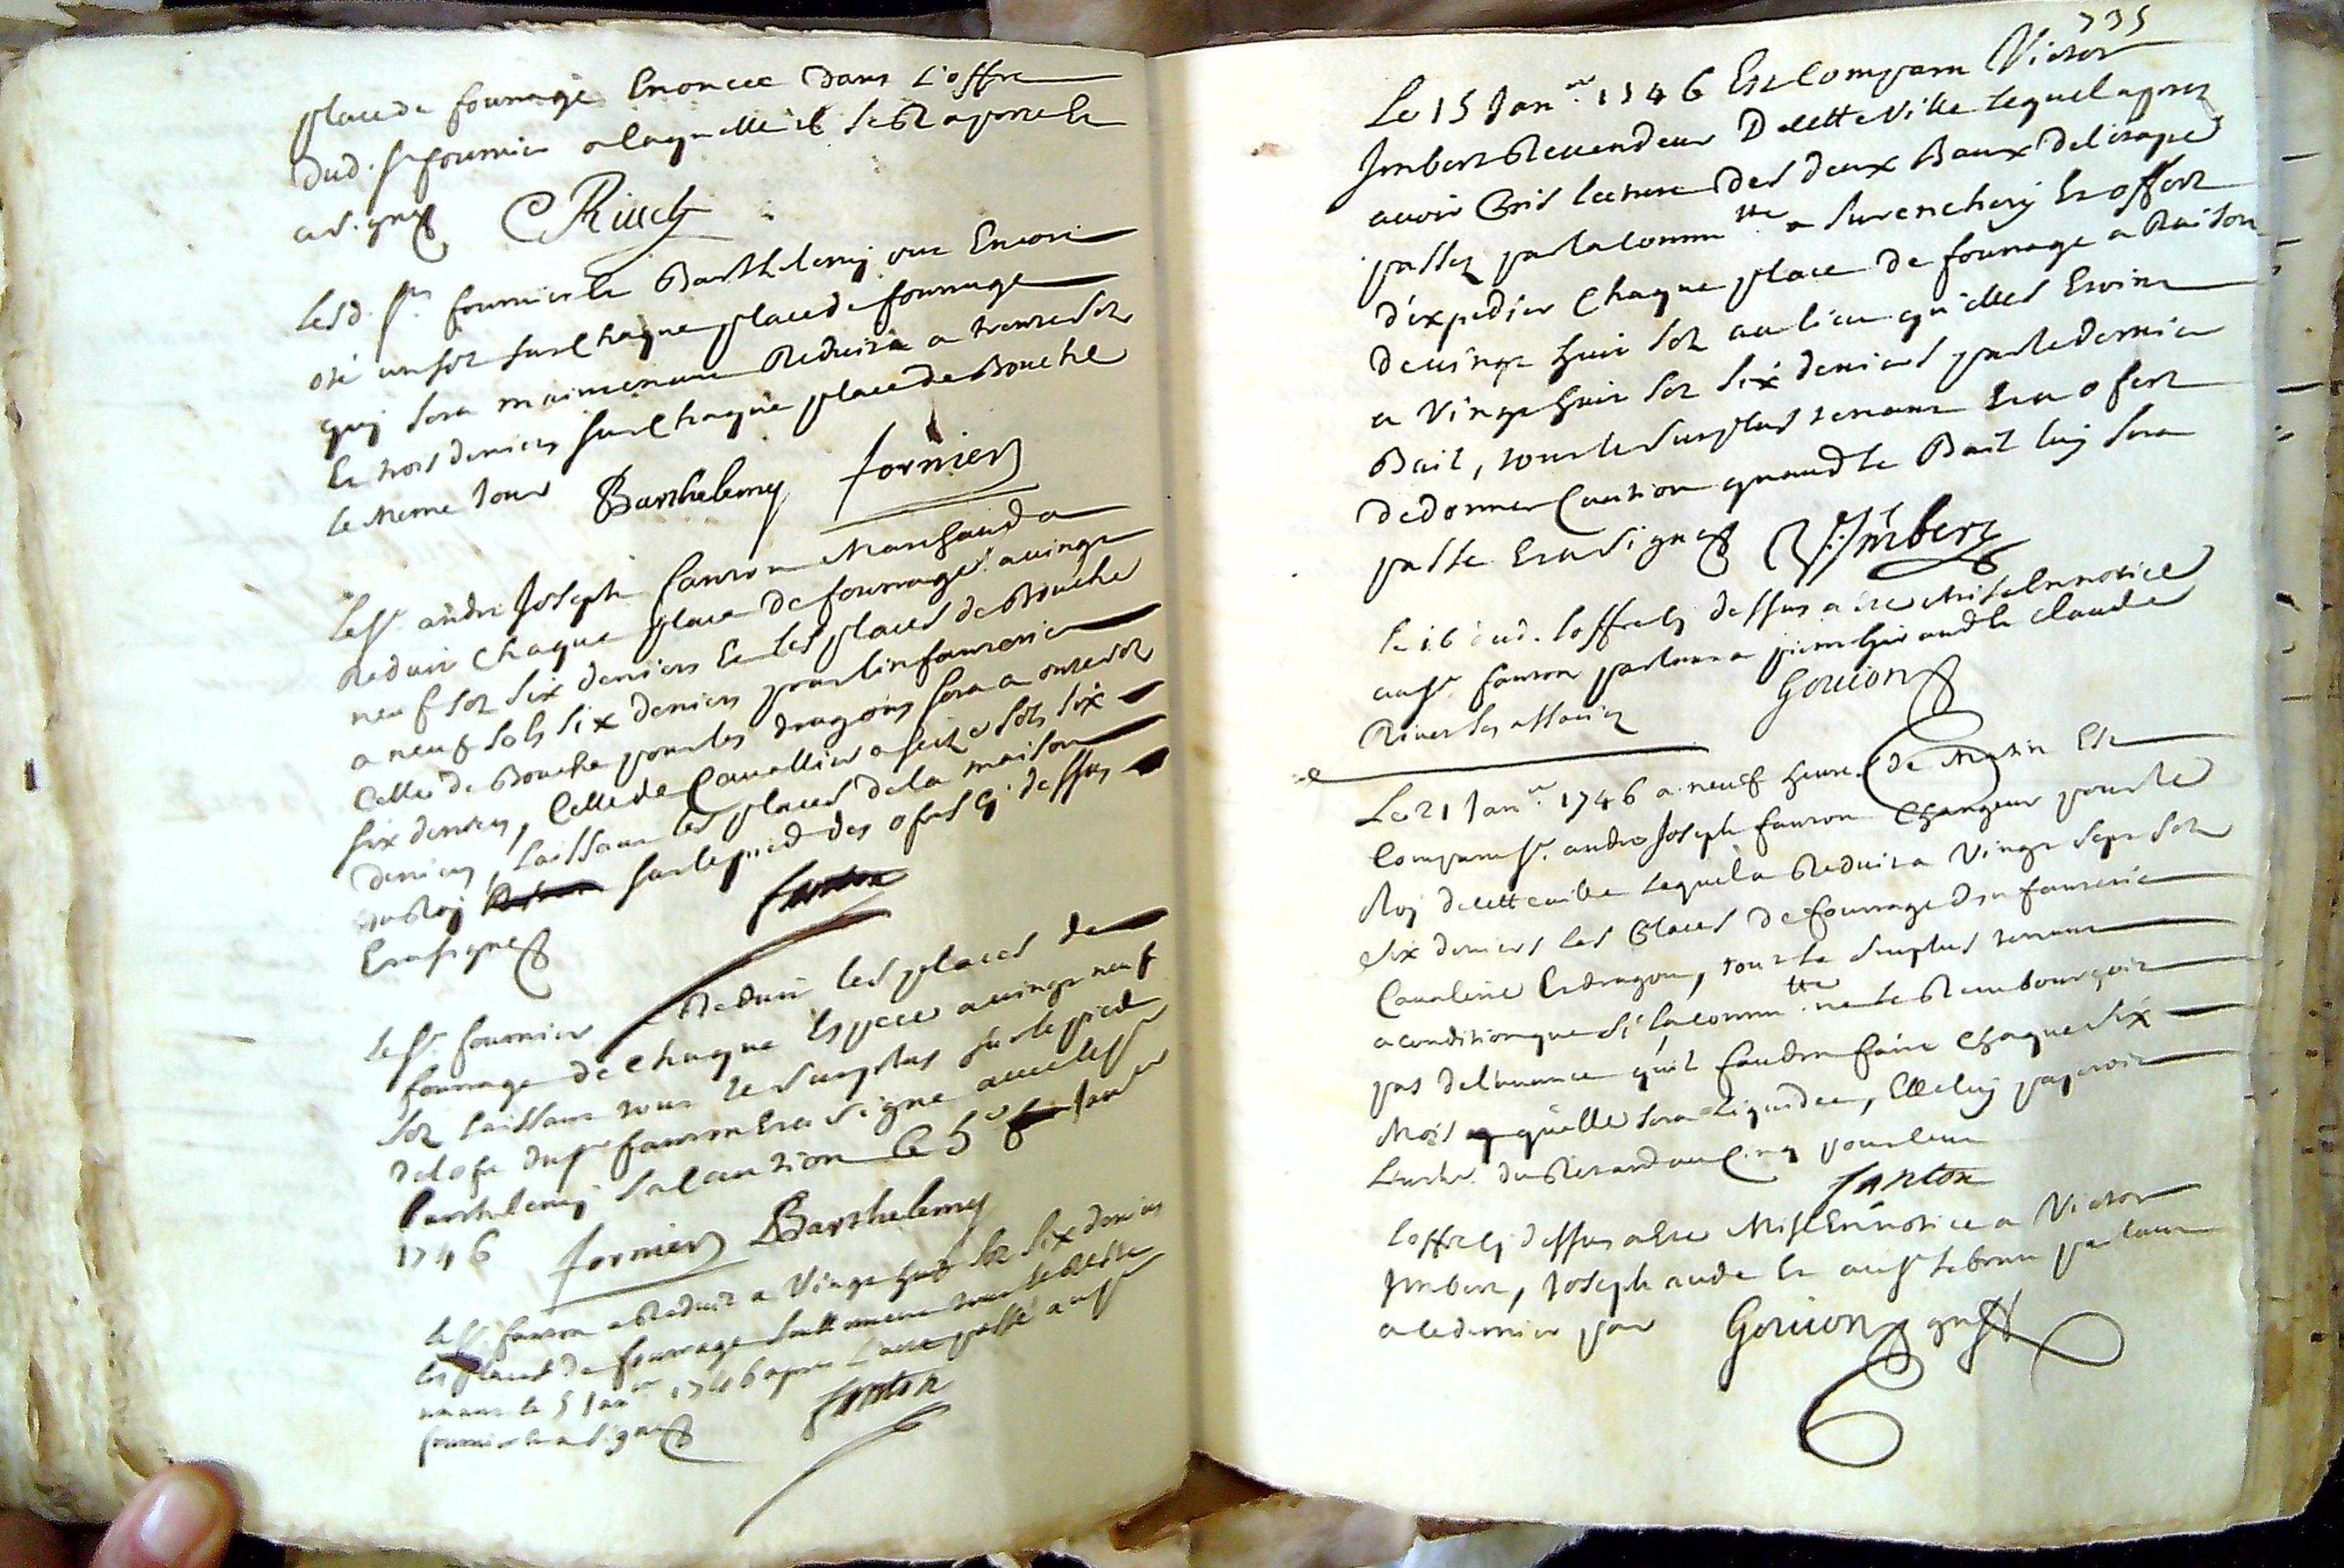 place de fourrage Enoncee dans L'offre
dud. sr fournier a laquelle il se Raporte Et
a signé C Riuet
Lesd. srs fournier Et Barthelemy ont Encore
oté un sol sur Chaque place de fourrage
quy sera maintenant Reduite a trente sols
Et trois deniers sur Chaque place de Bouche
le meme Jour Barthelemy fornier
Le sr. andre Joseph fanton Marchand a
Reduit Chaque place de fourrage a vingt
neuf sols six deniers Et les places de Bouche
a neuf sols six deniers pour linfanterie
Celle de Bouche pour les dragons sera a onze sols
six deniers, Celle de Cavallier a seize sols six
deniers, laissant les places de la maison
du Roy sur le pied des ofres cy dessus
Et a signé fanton
Le sr. fournier a Reduit les places de
fourrage de Chaque Espece a vingt neuf
sols laissant tout le surplus sur le pied
de lofre du sr fanton Et a signé avec le sr
Barthelemy sa Caution Ce 5e Janvr
1746 fornier Barthelemy
Le sr. fanton a Reduit a Vingt huit sols six deniers
les places de fourrage seullement tout le Reste
tenant le 5 Janer 1746 apres l'acte passé au sr
fournier Et a signé fanton
735
Le 15 Janer. 1746 Est Comparu Victor
Imbert Revendeur De cette Ville lequel aprez
avoir Pris lecture des deux Baux de létape
passez par la Commtté a surenchery Et offert
d'éxpedier Chaque place de fourrage a Raison
de vingt huit sols au lieu qu'elles Etoint
a Vingt huit sols six deniers par le dernier
Bail, tout le surplus tenant Et a ofert
de donner Caution quand le Bail luy sera
passé Et a signé V Imbert
Le 16 dud. loffre cy dessus a été mise En notice
au sr fanton parlant a pierre Giraud Et Claude
Rivet ses associez Gouion
Le 21 Janer. 1746 a neuf heures de Matin Est
Comparu sr. andre Joseph fanton Changeur pour le
Roy de cette ville lequel a Reduit a Vingt sept sols
six deniers les Places de fourrage d'infanterie
Cavalerie Et dragons, tout le surplus tenant
a condition que si la Commtté ne le Remboursoit
pas de lavance quil faudra faire Chaque six
Mois quelle sera Liquidée, Elle luy payeroit
Linterest du Retard au Cinq pour Cent
fanton
Loffre cy dessus a Eté Mise En notice a Victor
Imbert, Joseph aude Et au sr lebrun parlant
a ce dernier par Gouion greff